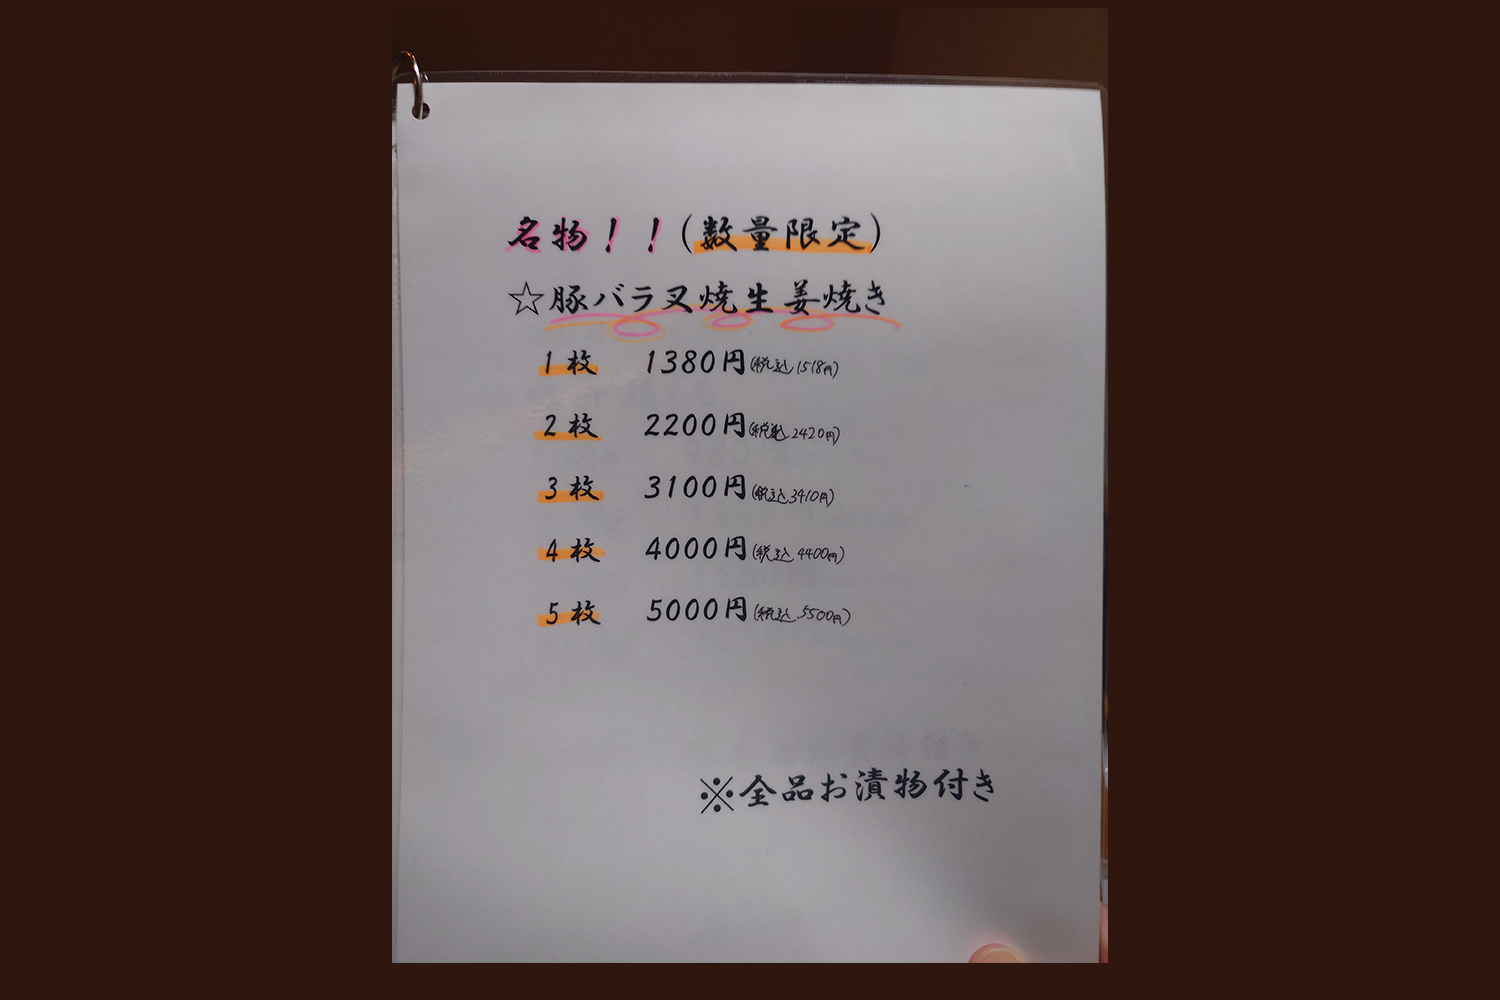 名物！！(数量限定)
☆豚バラ叉焼生姜焼き
1枚 1380円(税込1518円)
2枚 2200円(税込2420円)
3枚 3100円(税込3410円)
4枚 4000円(税込4400円)
5枚 5000円(税込5500円)
※全品お漬物付き